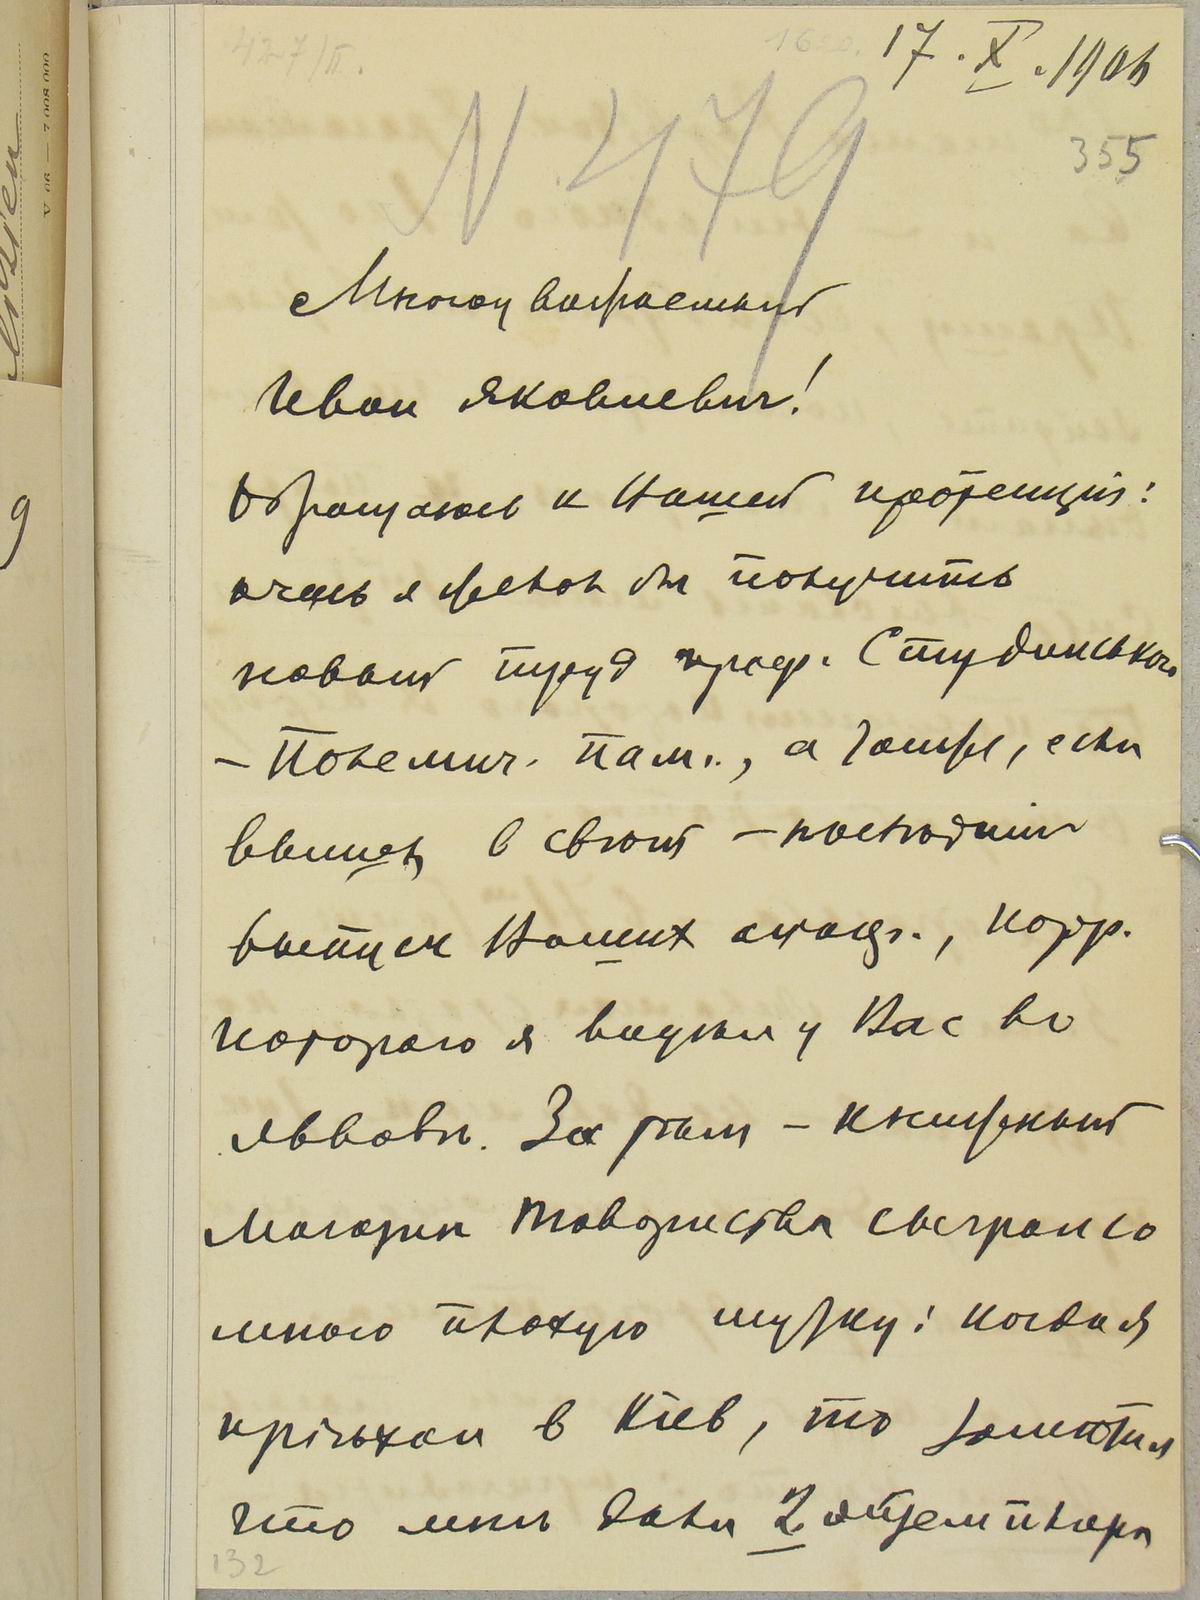 427/II.
17.X.1906
N 479
355
Многоуважаемый
Иван Яковлевич!
Обращаюсь к Вашей протекціи:
очень я желал бы получить
новый труд проф. Студинського
– Полемич. пам., а также, если
вышел в свет – последній
выпуск Ваших апокр., корр.
которого я видел у Вас во
Львове. За тем – книжный
магазин Товариства сыграл со
мною плохую шутку: когда я
пріехал в Кіев, то заметил
что мне дали 2 экземпляра
132